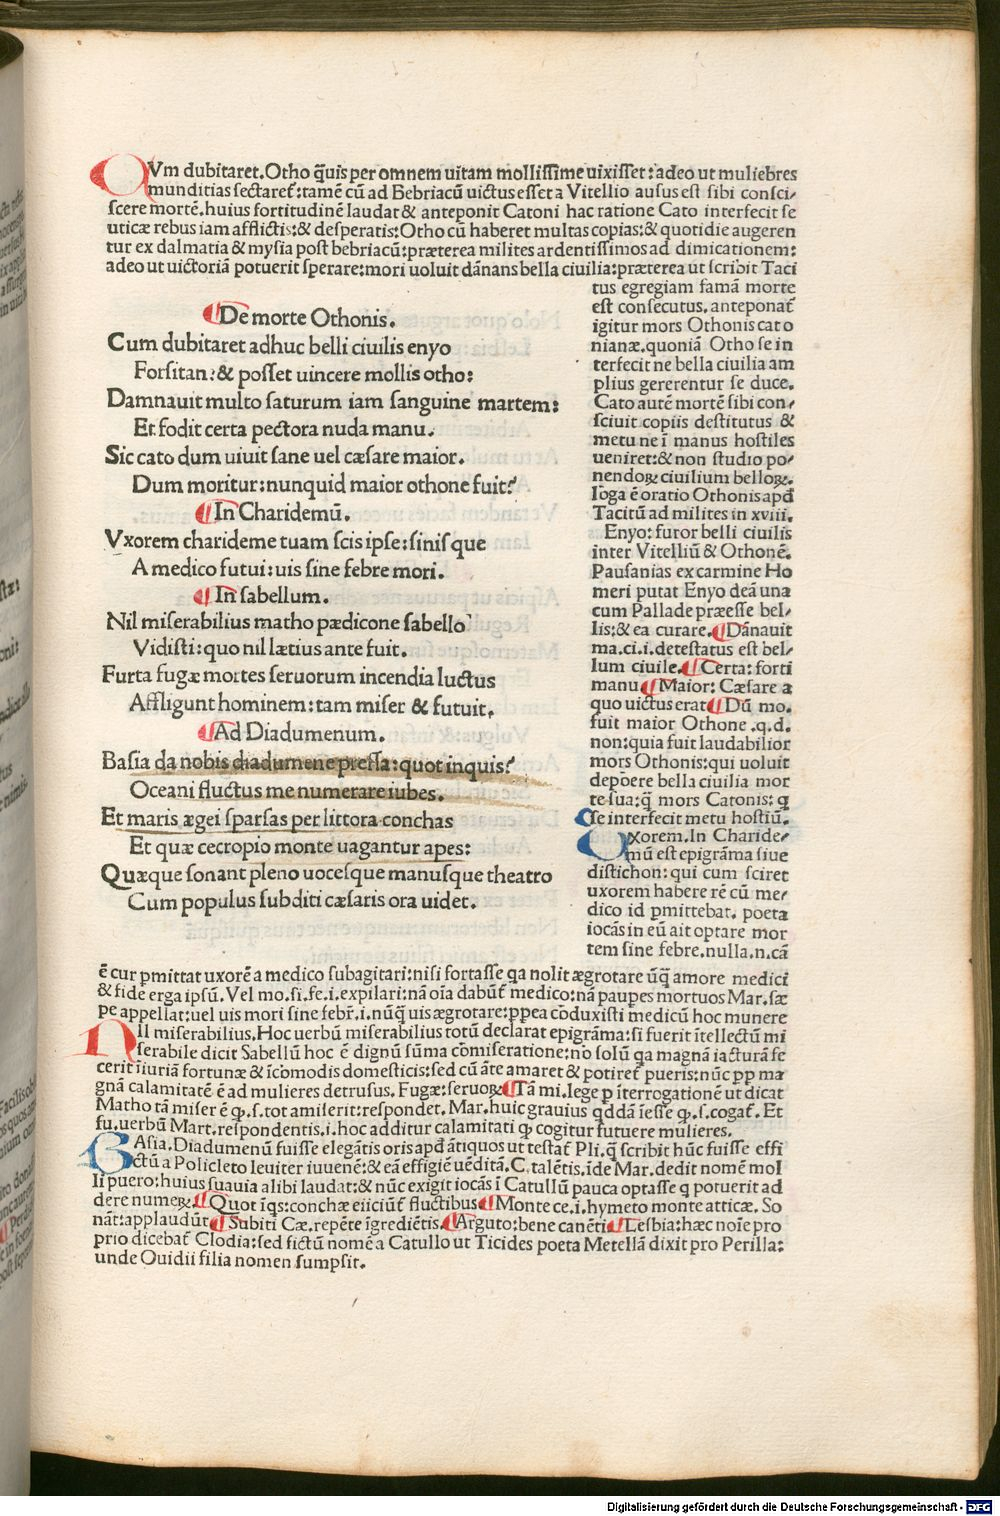 QVm dubitaret.Otho q̃uis per omnem uitam mollissime uixisset:adeo ut muliebres
munditias sectaret᷑:tamē cū ad Bebriacū uictus esset a Vitellio ausus est sibi consci-
scere mortē.huius fortitudinē laudat & anteponit Catoni hac ratione Cato interfecit se
uticæ rebus iam afflictis:& desperatis:Otho cū haberet multas copias:& quotidie augeren
tur ex dalmatia & mysia post bebriacū:præterea milites ardentissimos ad dimicationem:
adeo ut uictoriā potuerit sperare:mori uoluit dānans bella ciuilia:præterea ut scribit Taci
tus egregiam famā morte
est consecutus.anteponat᷑
igitur mors Othonis cato
nianæ.quoniā Otho se in
terfecit ne bella ciuilia am
plius gererentur se duce.
Cato autē mortē sibi con-
sciuit copiis destitutus &
metu ne ī manus hostiles
ueniret:& non studio po-
nendoꝝ ciuilium belloꝝ.
Ioga ē oratio Othonis apd̄
Tacitū ad milites in xviii.
Enyo: furor belli ciuilis
inter Vitelliū & Othonē.
Pausanias ex carmine Ho
meri putat Enyo deā una
cum Pallade præesse bel-
lis:& ea curare.¶Dānauit
ma.ci.i.detestatus est bel-
lum ciuile.¶Certa: forti
manu¶Maior: Cæsare a
quo uictus erat¶Dū mo.
fuit maior Othone .q.d.
non:quia fuit laudabilior
mors Othonis:qui uoluit
depōere bella ciuilia mor
te sua:q̄ mors Catonis: q
se interfecit metu hostiū.
Vxorem.In Charide-
mū est epigrāma siue
distichon: qui cum sciret
uxorem habere rē cū me-
dico id pmittebat. poeta
iocās in eū ait optare mor
tem sine febre.nulla.n.cā
¶De morte Othonis.
Cum dubitaret adhuc belli ciuilis enyo
Forsitan:& posset uincere mollis otho:
Damnauit multo saturum iam sanguine martem:
Et fodit certa pectora nuda manu.
Sic cato dum uiuit sane uel cæsare maior.
Dum moritur:nunquid maior othone fuit?
¶In Charidemū.
Vxorem charideme tuam scis ipse:sinisque
A medico futui:uis sine febre mori.
¶In sabellum.
Nil miserabilius matho pædicone sabello
Vidisti:quo nil lætius ante fuit.
Furta fugæ mortes seruorum incendia luctus
Affligunt hominem:tam miser & futuit.
¶Ad Diadumenum.
Basia da nobis diadumene pressa:quot inquis?
Oceani fluctus me numerare iubes.
Et maris ægei sparsas per littora conchas
Et quæ cecropio monte uagantur apes:
Quæque sonant pleno uocesque manusque theatro
Cum populus subditi cæsaris ora uidet.
ē cur pmittat uxorē a medico subagitari:nisi fortasse qa nolit ægrotare ūq̄ amore medici
& fide erga ipsū. Vel mo.si.fe.i.expilari:nā oīa dabūt᷑ medico:nā paupes mortuos Mar.sæ
pe appellat:uel uis mori sine febr̄.i.nūq̄ uis ægrotare:ppea cōduxisti medicū hoc munere
NIl miserabilius.Hoc uerbū miserabilius totū declarat epigrāma:si fuerit ītellectū mi
serabile dicit Sabellū hoc ē dignū sūma cōmiseratione:nō solū qa magnā iacturā fe
cerit īiuriā fortunæ & īcomodis domesticis:sed cū āte amaret & potiret᷑ pueris:nūc pp ma
gnā calamitatē ē ad mulieres detrusus. Fugæ:seruoꝝ¶Tā mi.lege p īterrogationē ut dicat
Matho tā miser ē ꝙ.s.tot amiserit:respondet. Mar.huic grauius qddā īesse ꝙ.s.cogat᷑. Et
fu.uerbū Mart.respondentis.i.hoc additur calamitati ꝙ cogitur futuere mulieres.
BAsia.Diadumenū fuisse elegātis oris apd̄ ātiquos ut testat᷑ Pli.q̄ scribit hūc fuisse effi
ctū a Policleto leuiter iuuenē:& eā effigiē uēditā.C.talētis.īde Mar.dedit nomē mol
li puero:huius suauia alibi laudat:& nūc exigit iocās ī Catullū pauca optasse q potuerit ad
dere numeꝝ.¶Quot īqs:conchæ eiiciūt᷑ fluctibus¶Monte ce.i.hymeto monte atticæ. So
nāt:applaudūt¶Subiti Cæ.repēte īgrediētis.¶Arguto:bene canēti¶Lesbia:hæc noīe pro
prio dicebat᷑ Clodia:sed fictū nomē a Catullo ut Ticides poeta Metellā dixit pro Perilla:
unde Ouidii filia nomen sumpsit.
Digitalisierung gefördert durch die Deutsche Forschungsgemeinschaft - DFG